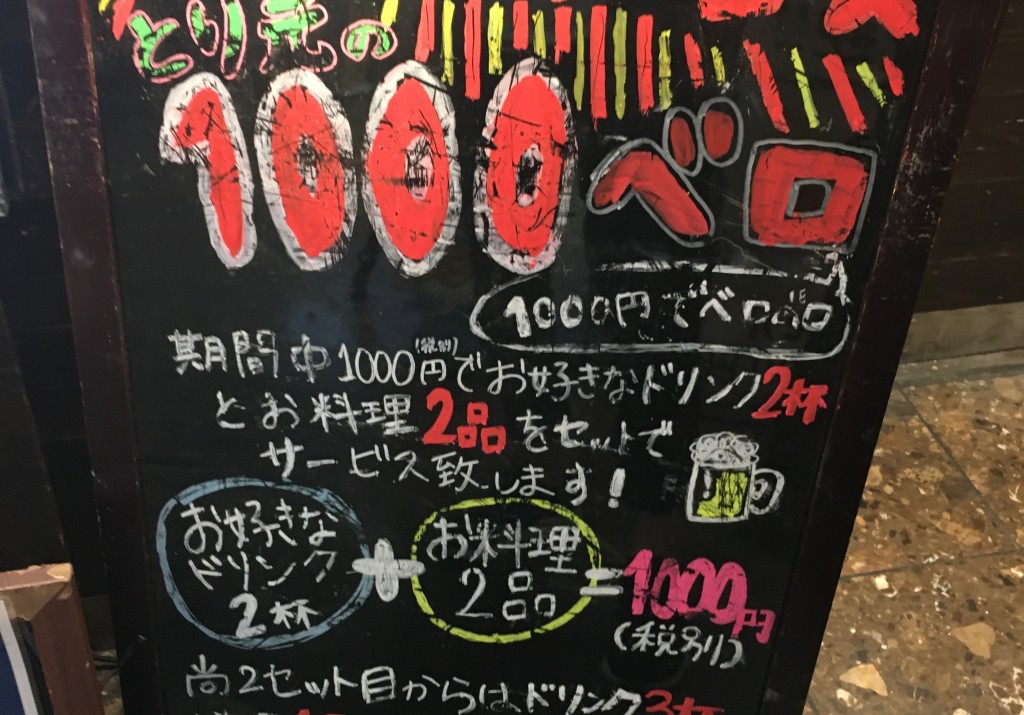 とり
の
1000ベロ
1000円でベロベロ
期間中1000円(税別)でお好きなドリンク2杯
とお料理2品をセットで
サービス致します!
お好きな
ドリンク
2杯
+
お料理
2品
=1000円
(税別)
尚2セット目からはドリンク3杯